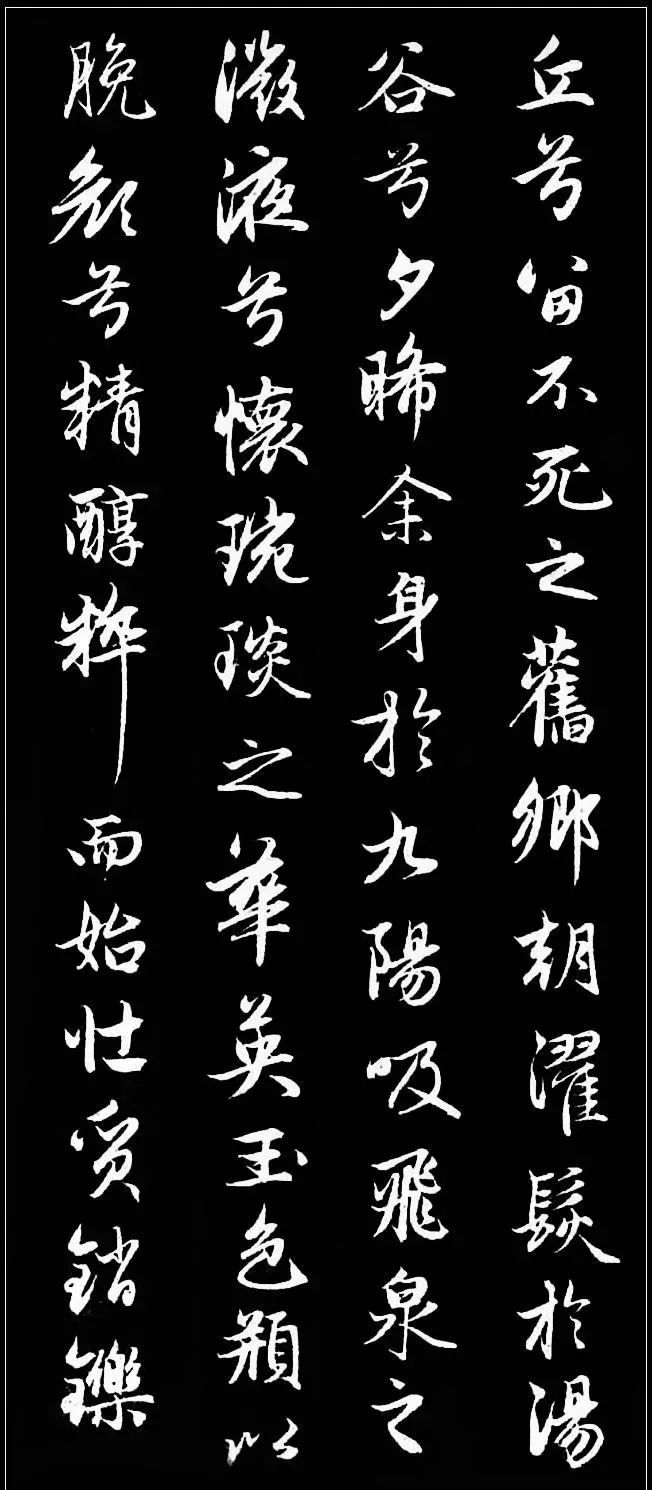 丘兮留不死之舊鄉朝濯髮於湯
谷兮夕晞余身於九陽吸飛泉之
微液兮懷琬琰之華英玉色頩以
脕顏兮精醇粹而始壯質銷鑠